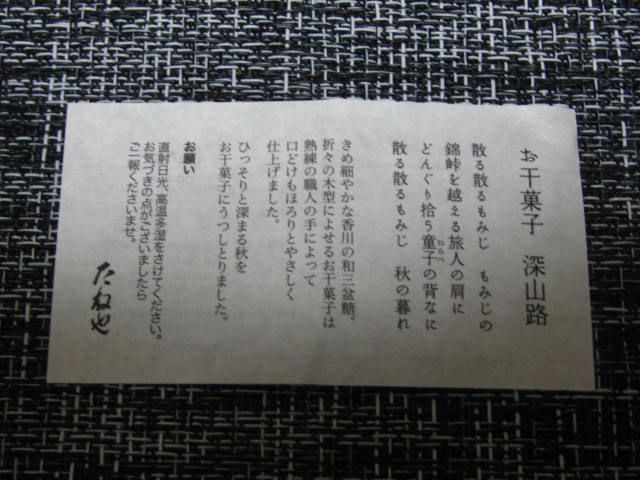 お干菓子　深山路
散る散るもみじ　もみじの
錦峠を越える旅人の肩に
どんぐり拾う童子の背なに
わらべ
散る散るもみじ　秋の暮れ
きめ細やかな香川の和三盆糖。
折々の木型によせるお干菓子は
熟練の職人の手によって
口どけもほろりとやさしく
仕上げました。
ひっそりと深まる秋を
お干菓子にうつしとりました。
お願い
直射日光、高温多湿をさけてください。
お気づきの点がございましたら
ご一報くださいませ。
たねや